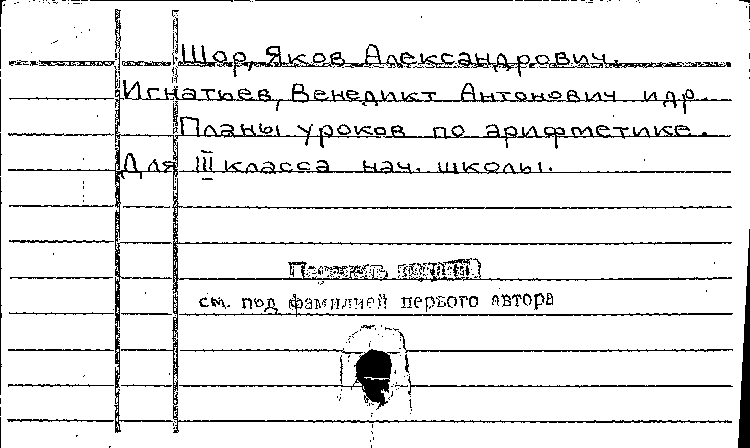 Шор, Яков Александрович.
Игнатьев, Венедикт Антонович и др.
Планы уроков по арифметике.
Для III класса нач. школы.
см. под фамилией первого автора